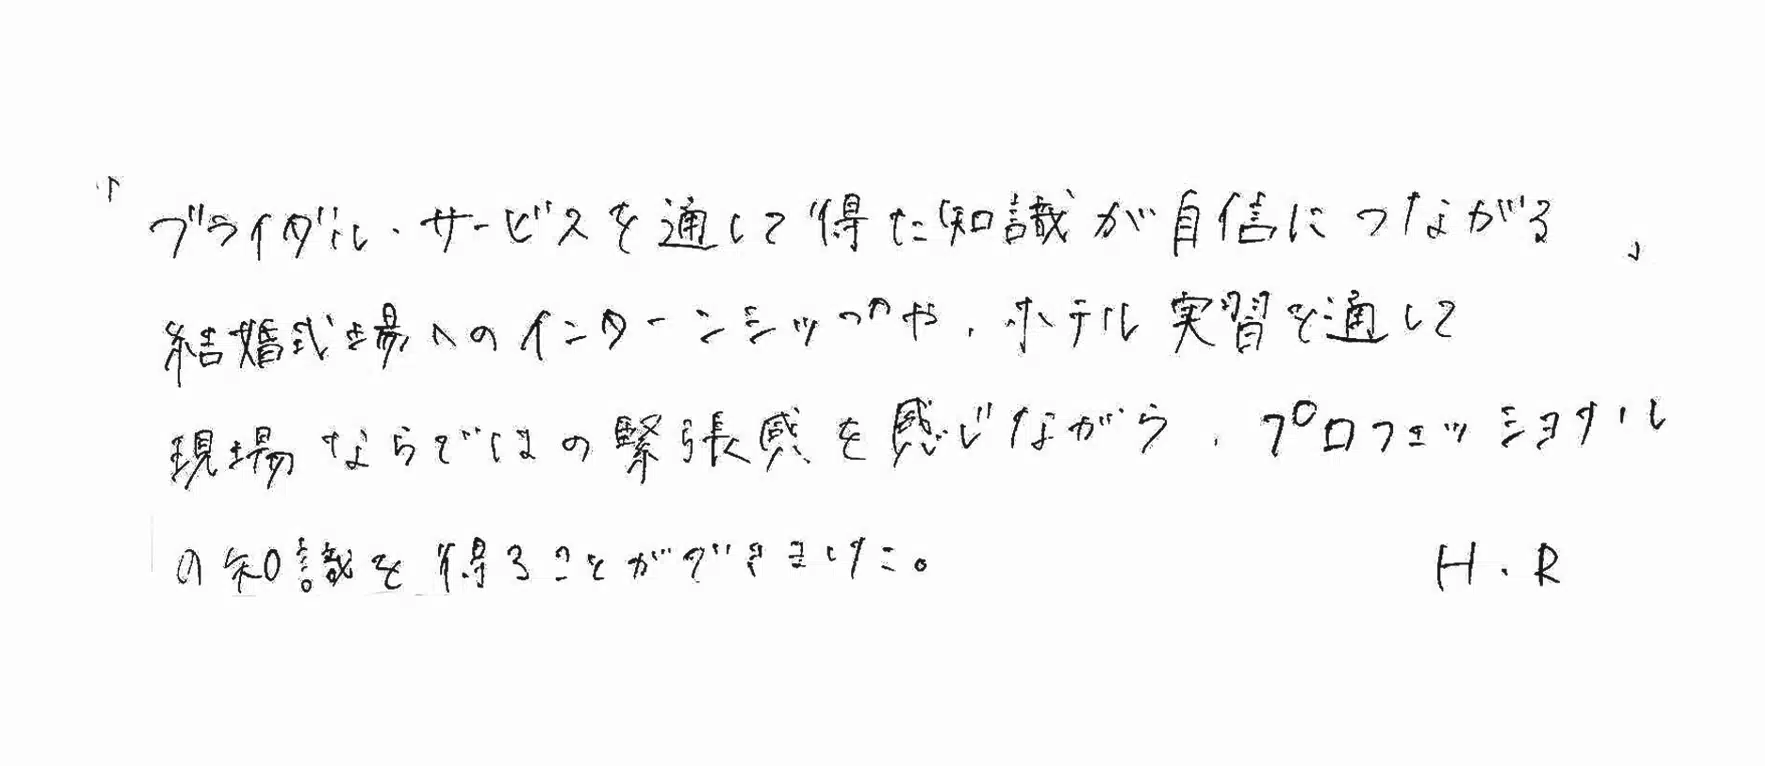 「ブライダル・サービスを通して得た知識が自信につながる」
結婚式場へのインターンシップや、ホテル実習を通して
現場ならではの緊張感を感じながら、プロフェッショナル
の知識を得ることができました。 H.R